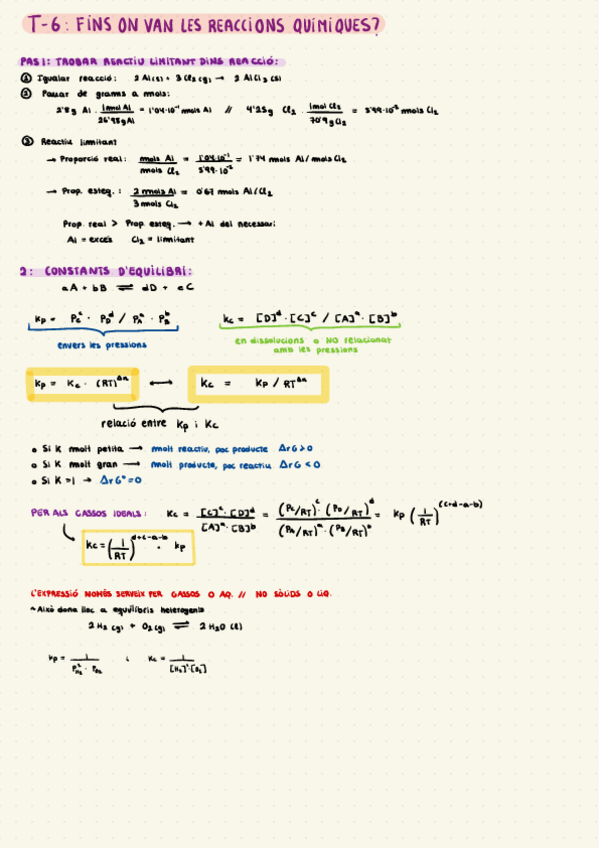 T-6: FINS ON VAN LES REACCIONS QUÍMIQUES?
PAS 1: TROBAR REACTIU LIMITANT DINS REACCIÓ:
① Igualar reacció: 2 Al(s) + 3 Cl₂(g) → 2 AlCl₃(s)
② Passar de grams a mols:
2'8g Al · 1mol Al / 26'98g Al = 1'04·10⁻¹ mols Al // 4'25g Cl₂ · 1mol Cl₂ / 70'9g Cl₂ = 5'99·10⁻² mols Cl₂
③ Reactiu limitant
→ Proporció real: mols Al / mols Cl₂ = 1'04·10⁻¹ / 5'99·10⁻² = 1'74 mols Al/mols Cl₂
→ Prop. esteq.: 2 mols Al / 3 mols Cl₂ = 0'67 mols Al/Cl₂
Prop. real > Prop. esteq. → + Al del necessari
Al = excés Cl₂ = limitant
2: CONSTANTS D'EQUILIBRI:
aA + bB ⇌ dD + cC
Kp = Pc^c · PD^d / PA^a · PB^b
Kc = [D]^d · [C]^c / [A]^a · [B]^b
envers les pressions
en dissolucions o NO relacionat
amb les pressions
Kp = Kc · (RT)^Δn ⟷ Kc = Kp / RT^Δn
relació entre Kp i Kc
• Si K molt petita → molt reactiu, poc producte ΔrG>0
• Si K molt gran → molt producte, poc reactiu ΔrG<0
• Si K=1 → ΔrG°=0
PER ALS GASSOS IDEALS: Kc = [C]^c · [D]^d / [A]^a · [B]^b = (Pc/RT)^c · (PD/RT)^d / (PA/RT)^a · (PB/RT)^b = Kp (1/RT)^(c+d-a-b)
Kc = (1/RT)^d+c-a-b · Kp
L'EXPRESSIÓ NOMÉS SERVEIX PER GASSOS O AQ. // NO SÒLIDS O LIQ.
~Això dona lloc a equilibris heterogenis
2 H₂(g) + O₂(g) ⇌ 2 H₂O(l)
Kp = 1 / P²H₂ · PO₂ i Kc = 1 / [H₂]²·[O₂]